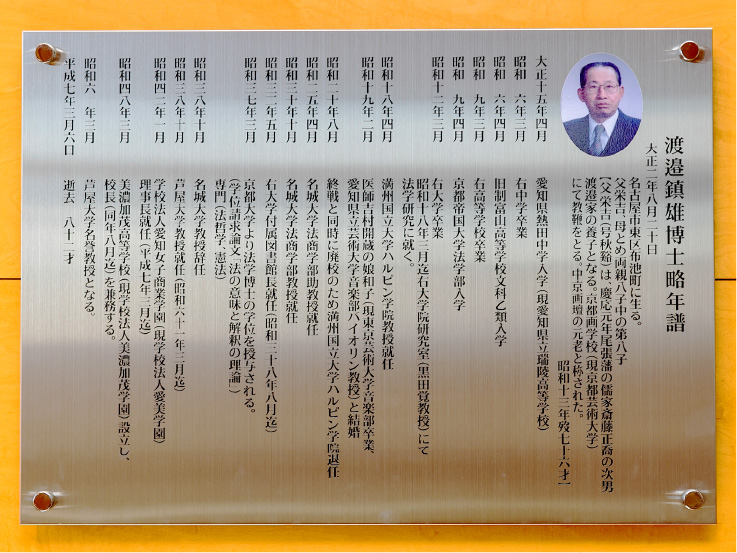 渡邉鎮雄博士略年譜
大正二年八月二十日
名古屋市東区布池町に生る。
父栄吉、母とめ両親八子中の第八子
(父 栄吉(号秋谿)は、慶応元年尾張藩の儒家斎藤正斎の次男
渡邉家の養子となる。京都画学校(現京都芸術大学)
にて教鞭をとる。中京画壇の元老と称された。
昭和十三年歿七十六才)
大正十五年四月 愛知県熱田中学入学(現愛知県立瑞陵高等学校)
昭和 六年三月 右中学卒業
昭和 六年四月 旧制富山高等学校文科乙類入学
昭和 九年三月 右高等学校卒業
昭和 九年四月 京都帝国大学法学部入学
昭和十二年三月 右大学卒業
昭和十八年三月迄右大学院研究室(黒田覚教授)にて
法学研究に就く。
昭和十八年四月 満州国立大学ハルビン学院教授就任
昭和十九年二月 医師吉村開蔵の娘和子(現東京芸術大学音楽部卒業、
愛知県立芸術大学音楽部バイオリン教授)と結婚
昭和二十年八月 終戦と同時に廃校のため満州国立大学ハルビン学院退任
昭和二五年四月 名城大学法商学部助教授就任
昭和三十年十月 名城大学法商学部教授就任
昭和三二年五月 右大学付属図書館長就任(昭和三十八年八月迄)
昭和三七年三月 京都大学より法学博士の学位を授与される。
(学位請求論文「法の意味と解釈の理論」)
専門(法哲学、憲法)
昭和三八年十月 名城大学教授辞任
昭和三八年十月 芦屋大学教授就任(昭和六十一年三月迄)
昭和四二年一月 学校法人愛知女子商業学園(現学校法人愛美学園)
理事長就任(平成七年三月迄)
昭和四八年三月 美濃加茂高等学校(現学校法人美濃加茂学園)設立し、
校長(同年八月迄)を兼務する。
昭和六 年三月 芦屋大学名誉教授となる。
平成七年三月六日 逝去 八十二才